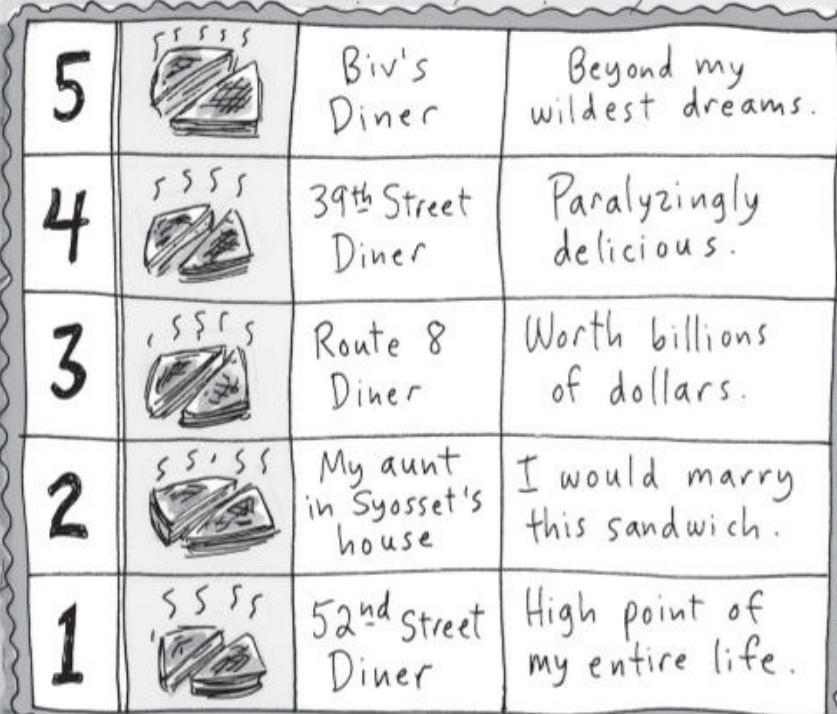 5
Biv's
Diner
Beyond my
wildest dreams.
4
39th Street
Diner
Paralyzingly
delicious.
3
Route 8
Diner
Worth billions
of dollars.
2
My aunt
in Syosset's
house
I would marry
this sandwich.
1
52nd Street
Diner
High point of
my entire life.